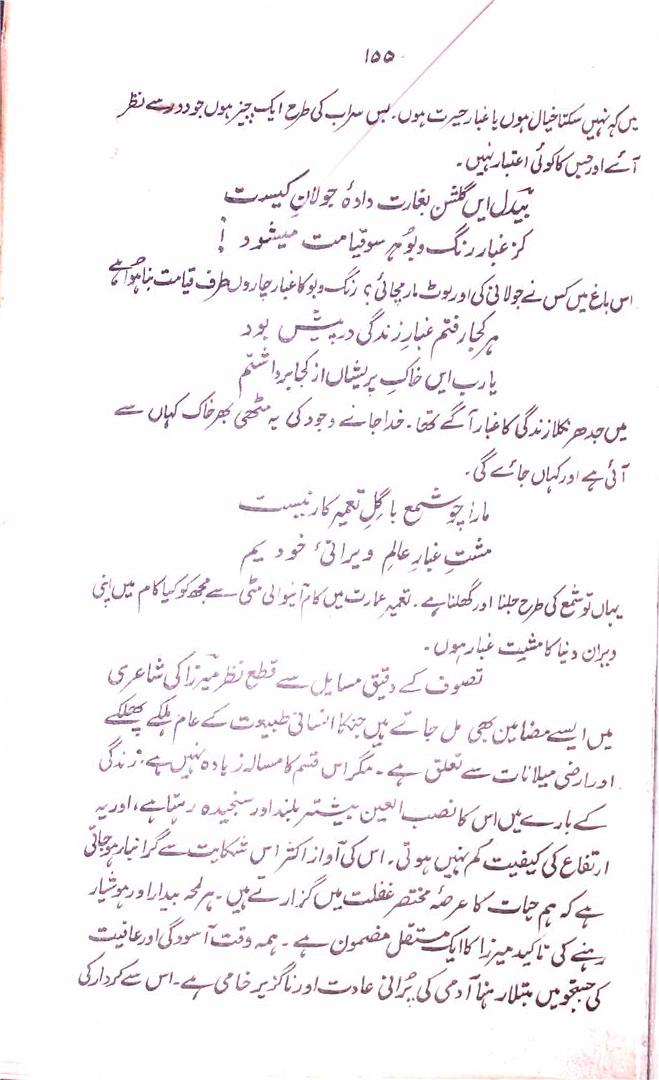 ۱۵۵
میں کہہ نہیں سکتا خیال ہوں یا غبار حیرت ہوں۔ بس سراب کی طرح ایک چیز ہوں جو دور سے نظر
آئے اور جس کا کوئی اعتبار نہیں۔
بیدل ایں گلشن بغارت دادۂ جولان کیست
کز غبار رنگ و بو ہر سو قیامت میشود !
اس باغ میں کس نے جولانی کی اور لوٹ مار مچائی؟ رنگ و بو کا غبار چاروں طرف قیامت بنا ہوا ہے
ہر کجا رفتم غبارِ زندگی در پیش بود
یارب ایں خاکِ پریشاں از کجا برداشتم
میں جدھر نکلا زندگی کا غبار آگے تھا۔ خدا جانے وجود کی یہ مٹھی بھر خاک کہاں سے
آئی ہے اور کہاں جائے گی۔
مارا چو شمع با گِلِ تعمیر کار نیست
مشتِ غبارِ عالمِ ویرانیٔ خودیم
یہاں تو شمع کی طرح جلنا اور گھلنا ہے۔ تعمیر عمارت میں کام آنیوالی مٹی سے مجھ کو کیا کام میں اپنی
ویران دنیا کا مشیت غبار ہوں۔
تصوف کے دقیق مسایل سے قطع نظر میرزا کی شاعری
میں ایسے مضامین بھی مل جاتے ہیں جنکا انسانی طبیعت کے عام ہلکے پھلکے
اور ارضی میلانات سے تعلق ہے۔ مگر اس قسم کا مسالہ زیادہ نہیں ہے، زندگی
کے بارے میں اس کا نصب العین بیشتر بلند اور سنجیدہ رہتا ہے، اور یہ
ارتفاع کی کیفیت کم نہیں ہوتی۔ اس کی آواز اکثر اس شکایت سے گرانبار ہو جاتی
ہے کہ ہم حیات کا عرصۂ مختصر غفلت میں گزارتے ہیں۔ ہر لمحہ بیدار اور ہوشیار
رہنے کی تاکید میرزا کا ایک مستقل مضمون ہے۔ ہمہ وقت آسودگی اور عافیت
کی جستجو میں مبتلا رہنا آدمی کی پرانی عادت اور ناگزیر خامی ہے۔ اس سے کردار کی